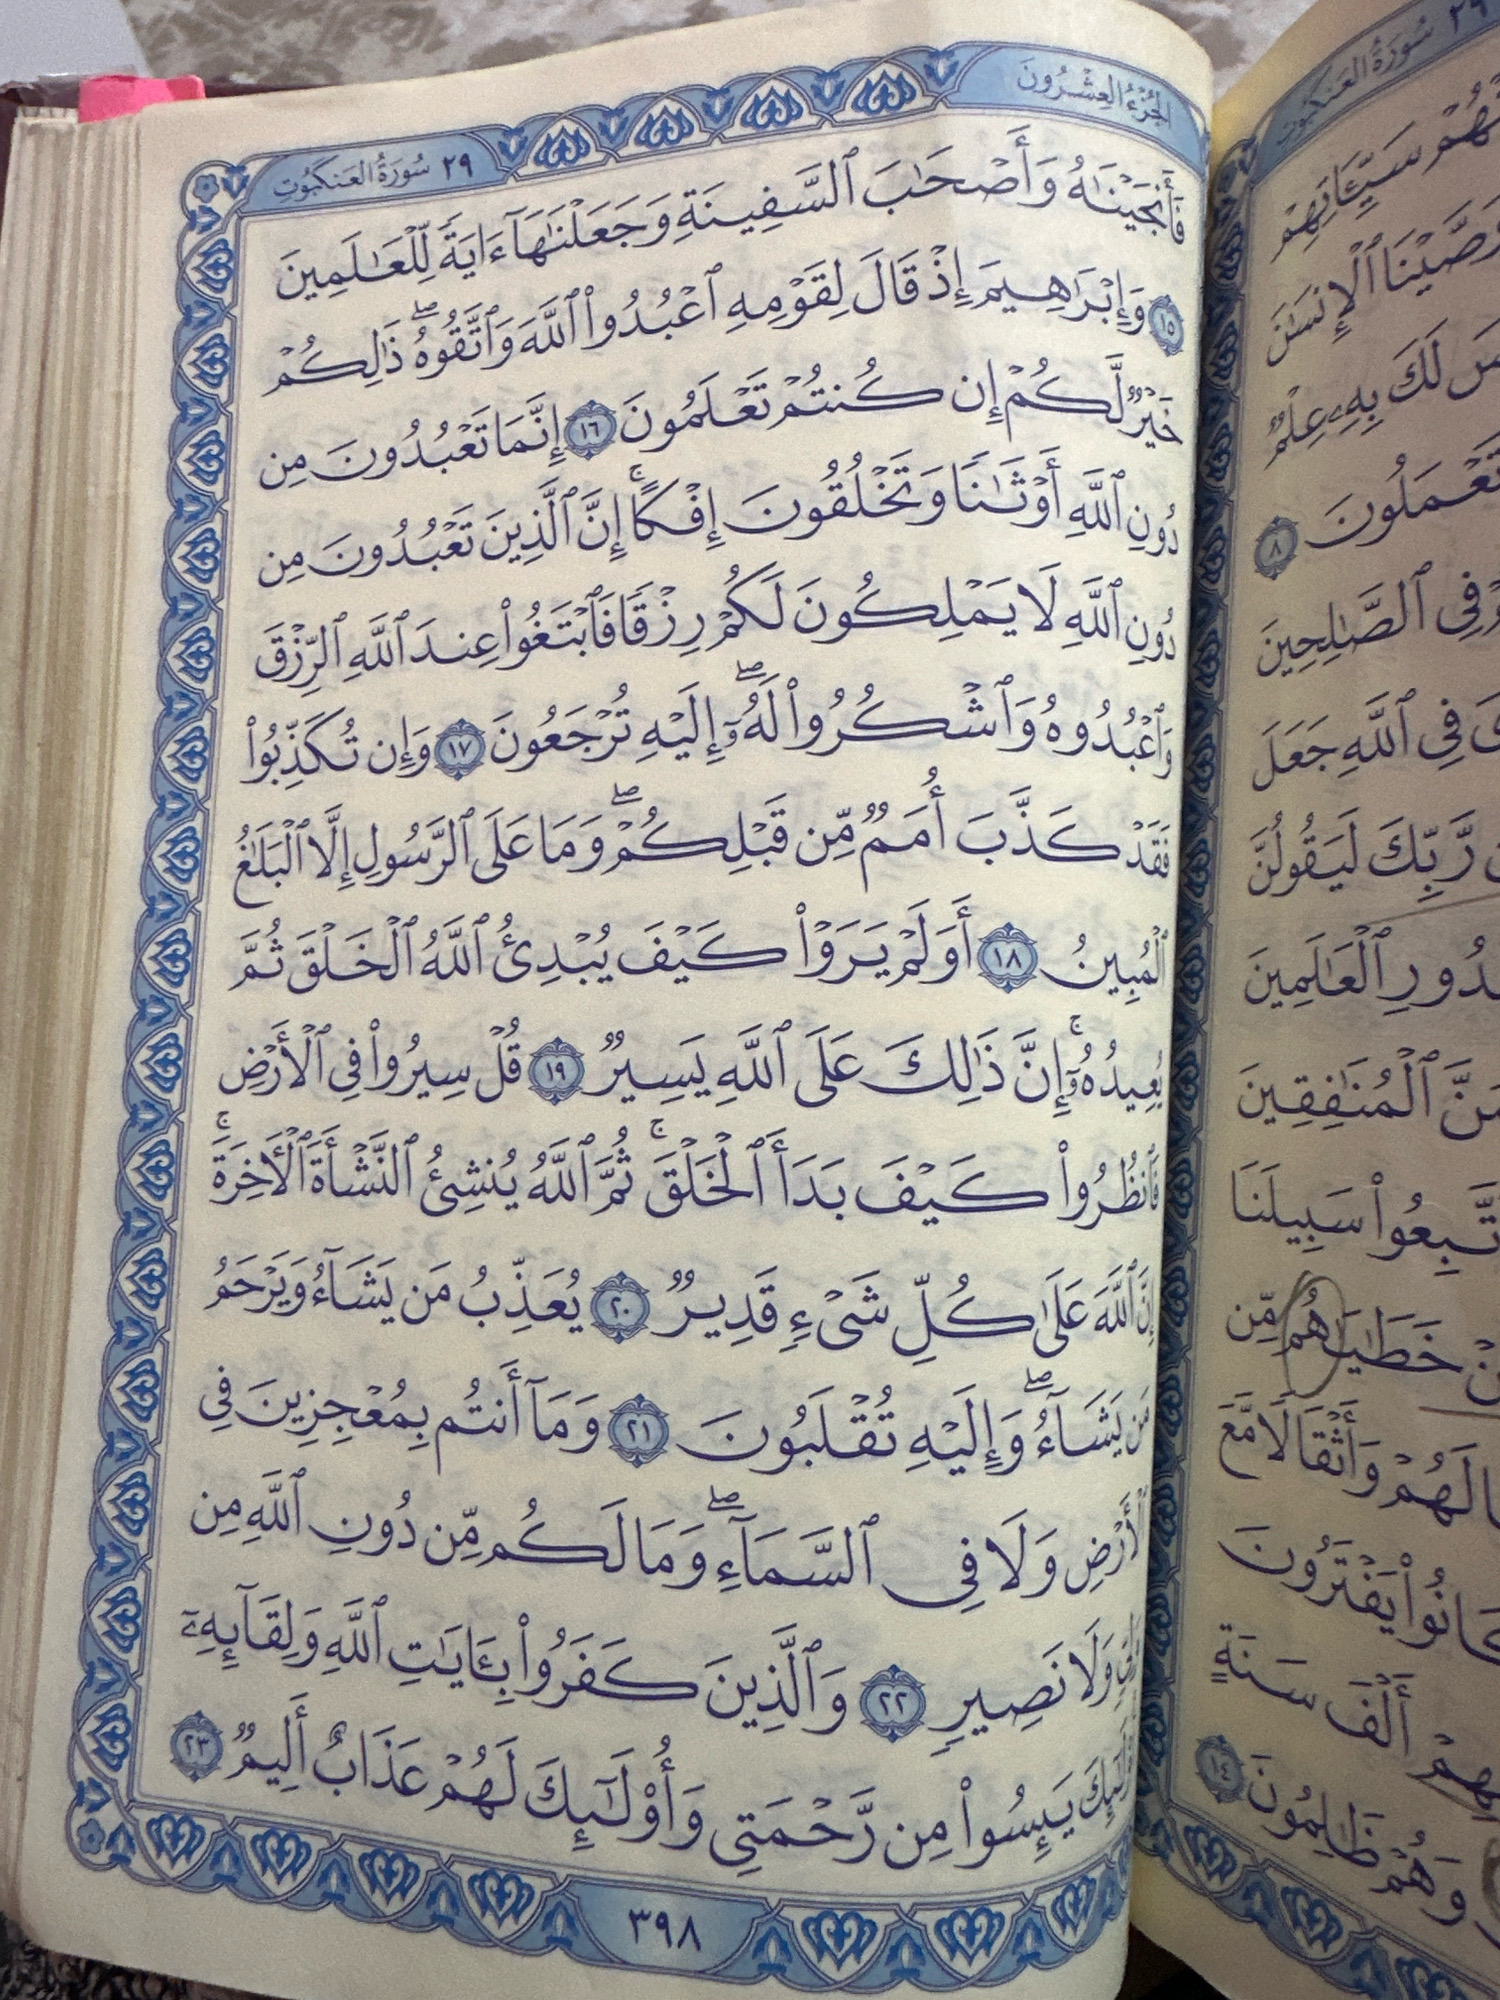 الجزء العشرون
٢٩ سورة العنكبوت
فَأَنجَيْنَٰهُ وَأَصْحَٰبَ ٱلسَّفِينَةِ وَجَعَلْنَٰهَآ ءَايَةً لِّلْعَٰلَمِينَ
١٥ وَإِبْرَٰهِيمَ إِذْ قَالَ لِقَوْمِهِ ٱعْبُدُوا۟ ٱللَّهَ وَٱتَّقُوهُ ۖ ذَٰلِكُمْ
خَيْرٌ لَّكُمْ إِن كُنتُمْ تَعْلَمُونَ ١٦ إِنَّمَا تَعْبُدُونَ مِن
دُونِ ٱللَّهِ أَوْثَٰنًا وَتَخْلُقُونَ إِفْكًا ۚ إِنَّ ٱلَّذِينَ تَعْبُدُونَ مِن
دُونِ ٱللَّهِ لَا يَمْلِكُونَ لَكُمْ رِزْقًا فَٱبْتَغُوا۟ عِندَ ٱللَّهِ ٱلرِّزْقَ
وَٱعْبُدُوهُ وَٱشْكُرُوا۟ لَهُۥٓ ۖ إِلَيْهِ تُرْجَعُونَ ١٧ وَإِن تُكَذِّبُوا۟
فَقَدْ كَذَّبَ أُمَمٌ مِّن قَبْلِكُمْ ۖ وَمَا عَلَى ٱلرَّسُولِ إِلَّا ٱلْبَلَٰغُ
ٱلْمُبِينُ ١٨ أَوَلَمْ يَرَوْا۟ كَيْفَ يُبْدِئُ ٱللَّهُ ٱلْخَلْقَ ثُمَّ
يُعِيدُهُۥٓ ۚ إِنَّ ذَٰلِكَ عَلَى ٱللَّهِ يَسِيرٌ ١٩ قُلْ سِيرُوا۟ فِى ٱلْأَرْضِ
فَٱنظُرُوا۟ كَيْفَ بَدَأَ ٱلْخَلْقَ ۚ ثُمَّ ٱللَّهُ يُنشِئُ ٱلنَّشْأَةَ ٱلْأَخِرَةَ ۚ
إِنَّ ٱللَّهَ عَلَىٰ كُلِّ شَىْءٍ قَدِيرٌ ٢٠ يُعَذِّبُ مَن يَشَآءُ وَيَرْحَمُ
مَن يَشَآءُ ۖ وَإِلَيْهِ تُقْلَبُونَ ٢١ وَمَآ أَنتُم بِمُعْجِزِينَ فِى
ٱلْأَرْضِ وَلَا فِى ٱلسَّمَآءِ ۖ وَمَا لَكُم مِّن دُونِ ٱللَّهِ مِن
وَلِىٍّ وَلَا نَصِيرٍ ٢٢ وَٱلَّذِينَ كَفَرُوا۟ بِـَٔايَٰتِ ٱللَّهِ وَلِقَآئِهِۦٓ
أُو۟لَٰٓئِكَ يَئِسُوا۟ مِن رَّحْمَتِى وَأُو۟لَٰٓئِكَ لَهُمْ عَذَابٌ أَلِيمٌ ٢٣
٣٩٨
٢٩ سورة العنكبوت
سَيِّـَٔاتِهِمْ
وَصَّيْنَا ٱلْإِنسَٰنَ
لَكَ بِهِۦ عِلْمٌ
تَعْمَلُونَ ٨
فِى ٱلصَّٰلِحِينَ
فِى ٱللَّهِ جَعَلَ
رَّبِّكَ لَيَقُولُنَّ
صُدُورِ ٱلْعَٰلَمِينَ
ٱلْمُنَٰفِقِينَ
ٱتَّبِعُوا۟ سَبِيلَنَا
خَطَٰيَٰهُم مِّن
وَأَثْقَالًا مَّعَ
كَانُوا۟ يَفْتَرُونَ
أَلْفَ سَنَةٍ
وَهُمْ ظَٰلِمُونَ ١٤